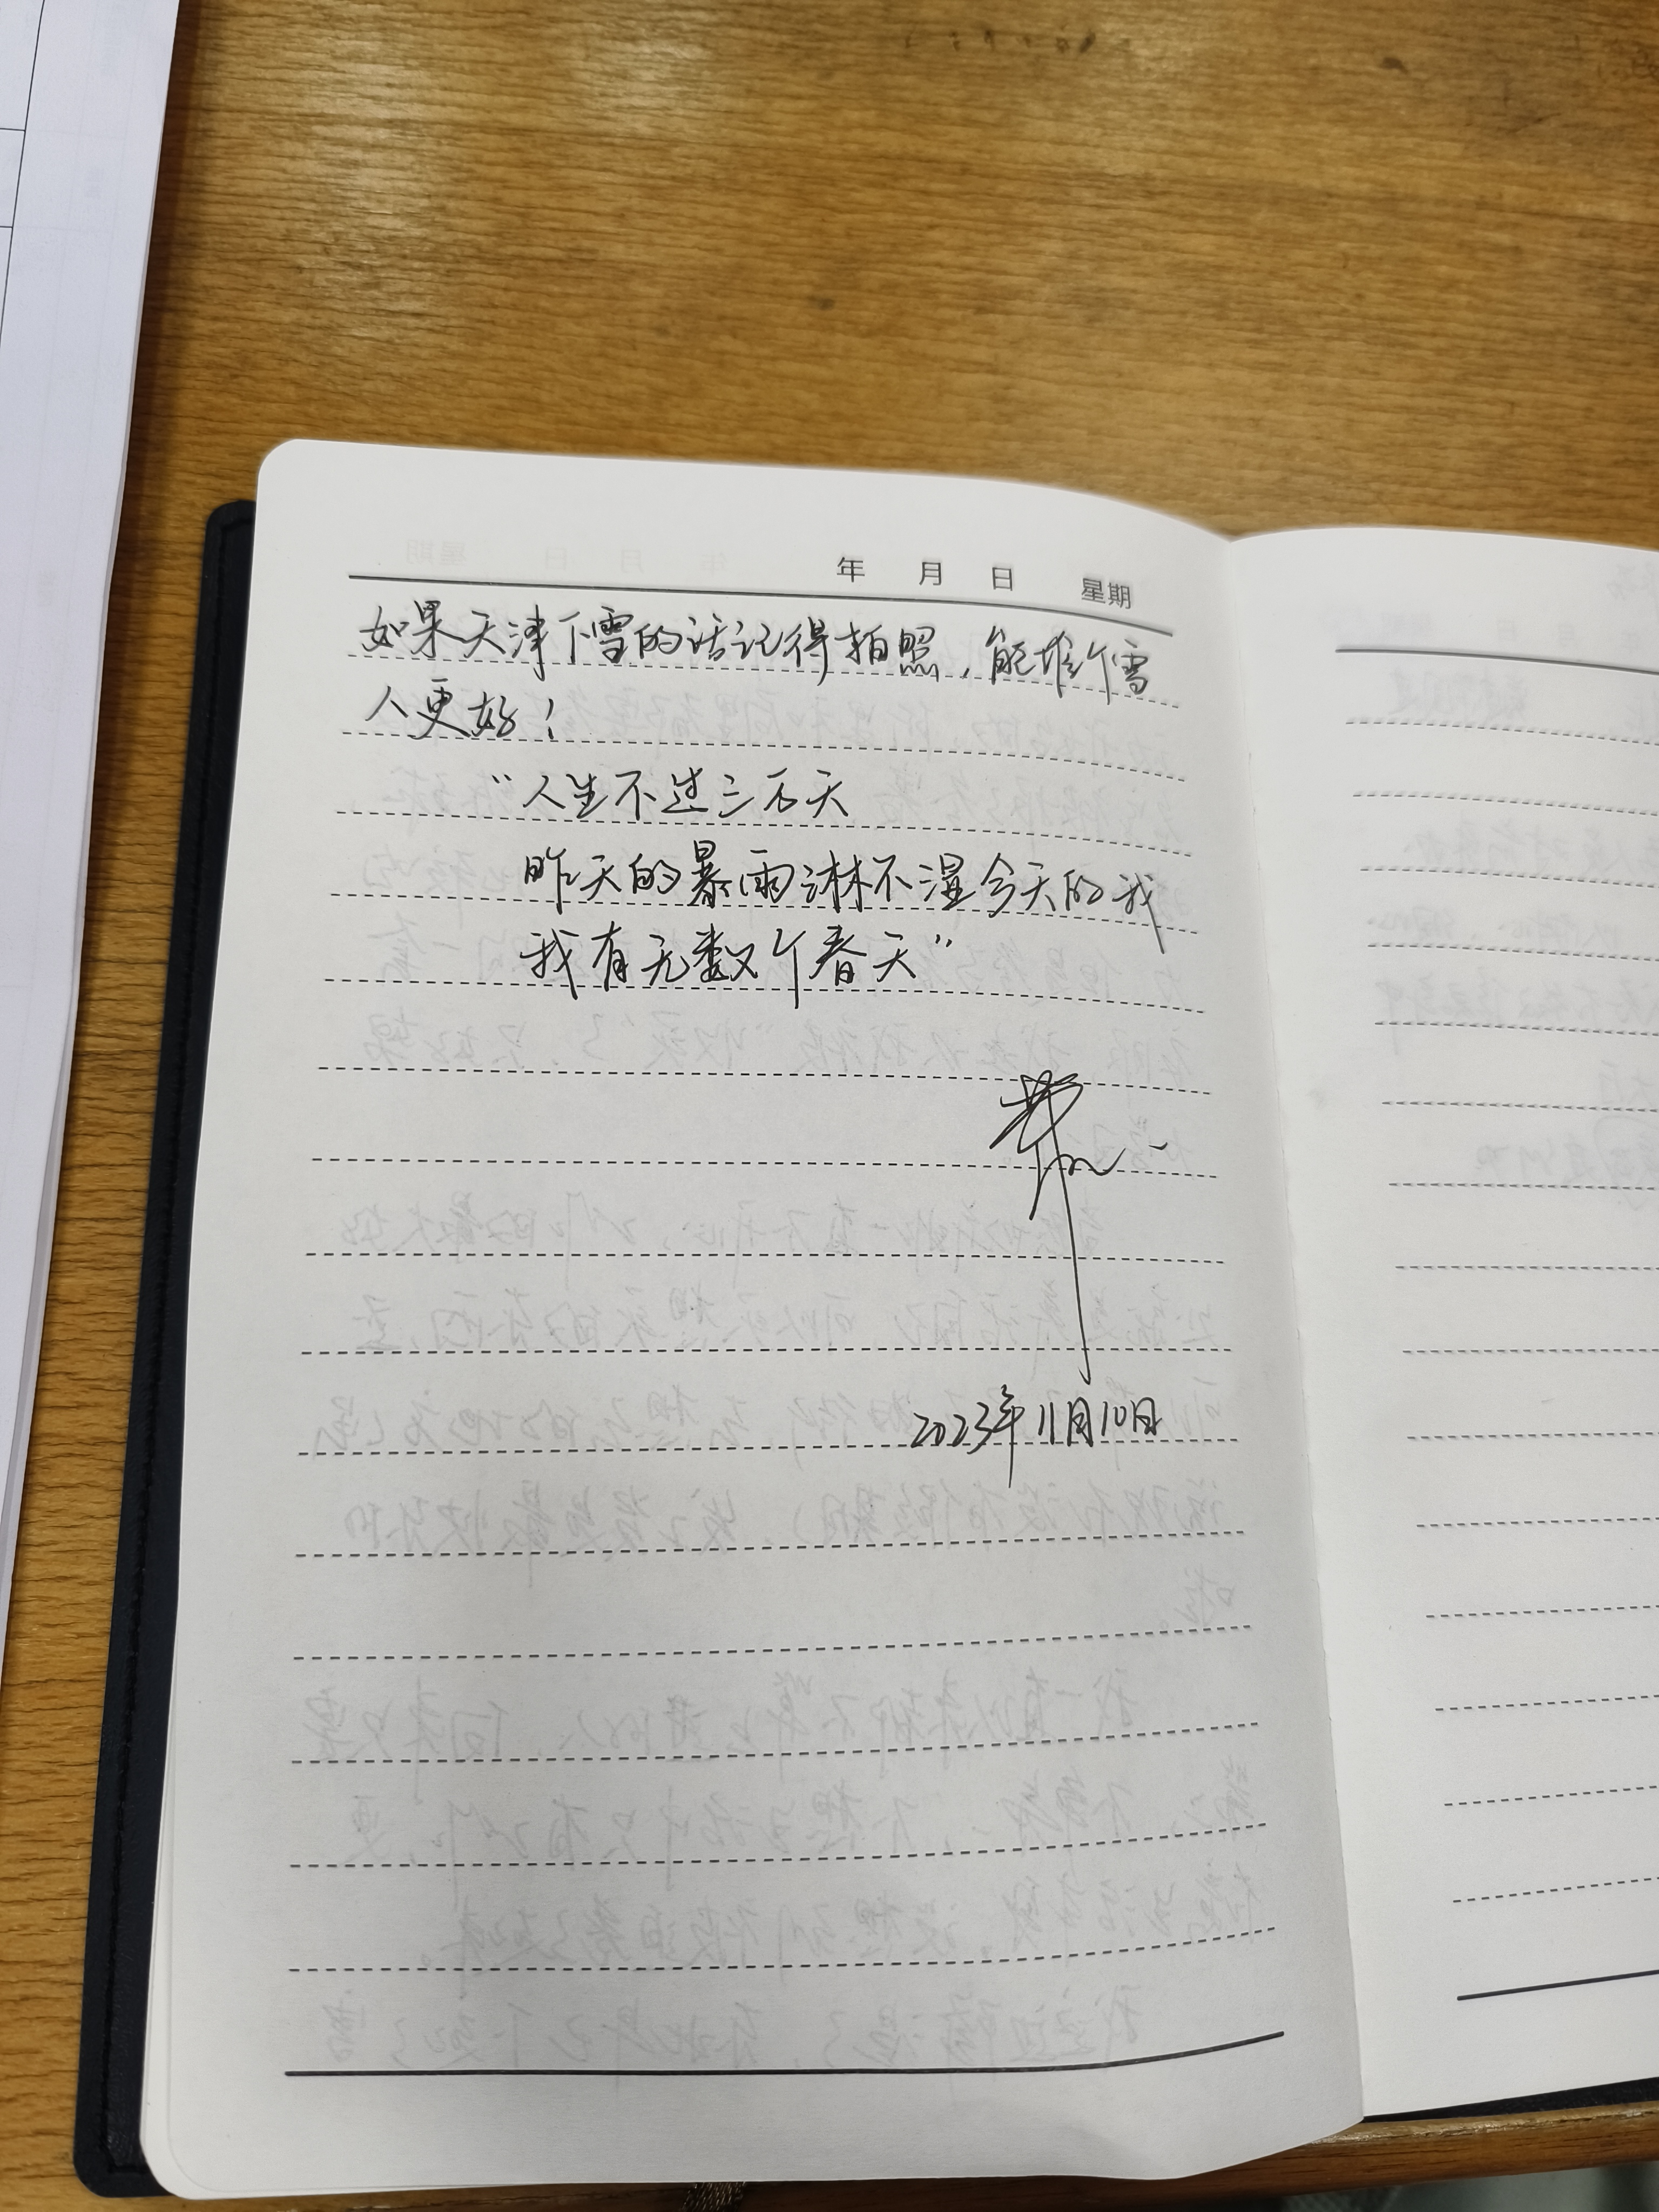 年 月 日 星期
如果天津下雪的话记得拍照，能堆个雪
人更好！
“人生不过三万天
昨天的暴雨淋不湿今天的我
我有无数个春天”
2023年11月10日